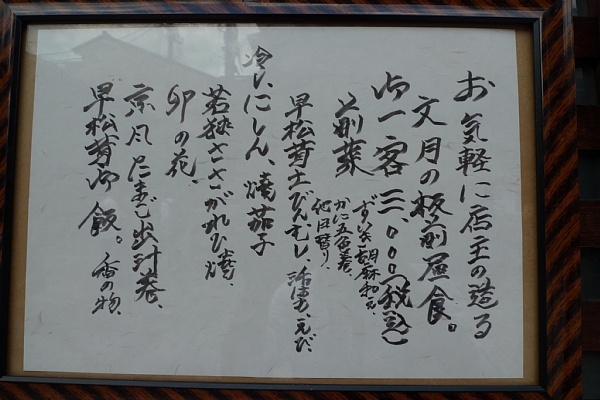 お気軽に店主の造る
文月の板前昼食。
御一客 三、〇〇〇(税込)
前菜
ずいき胡麻和え、
かに五色巻、
他日替り、
早松茸土びんむし、活はも、えび、
冷しにしん、焼茄子
若狭ささがれひ焼、
卯の花、
京風だまご出汁巻、
早松茸御飯。香の物、